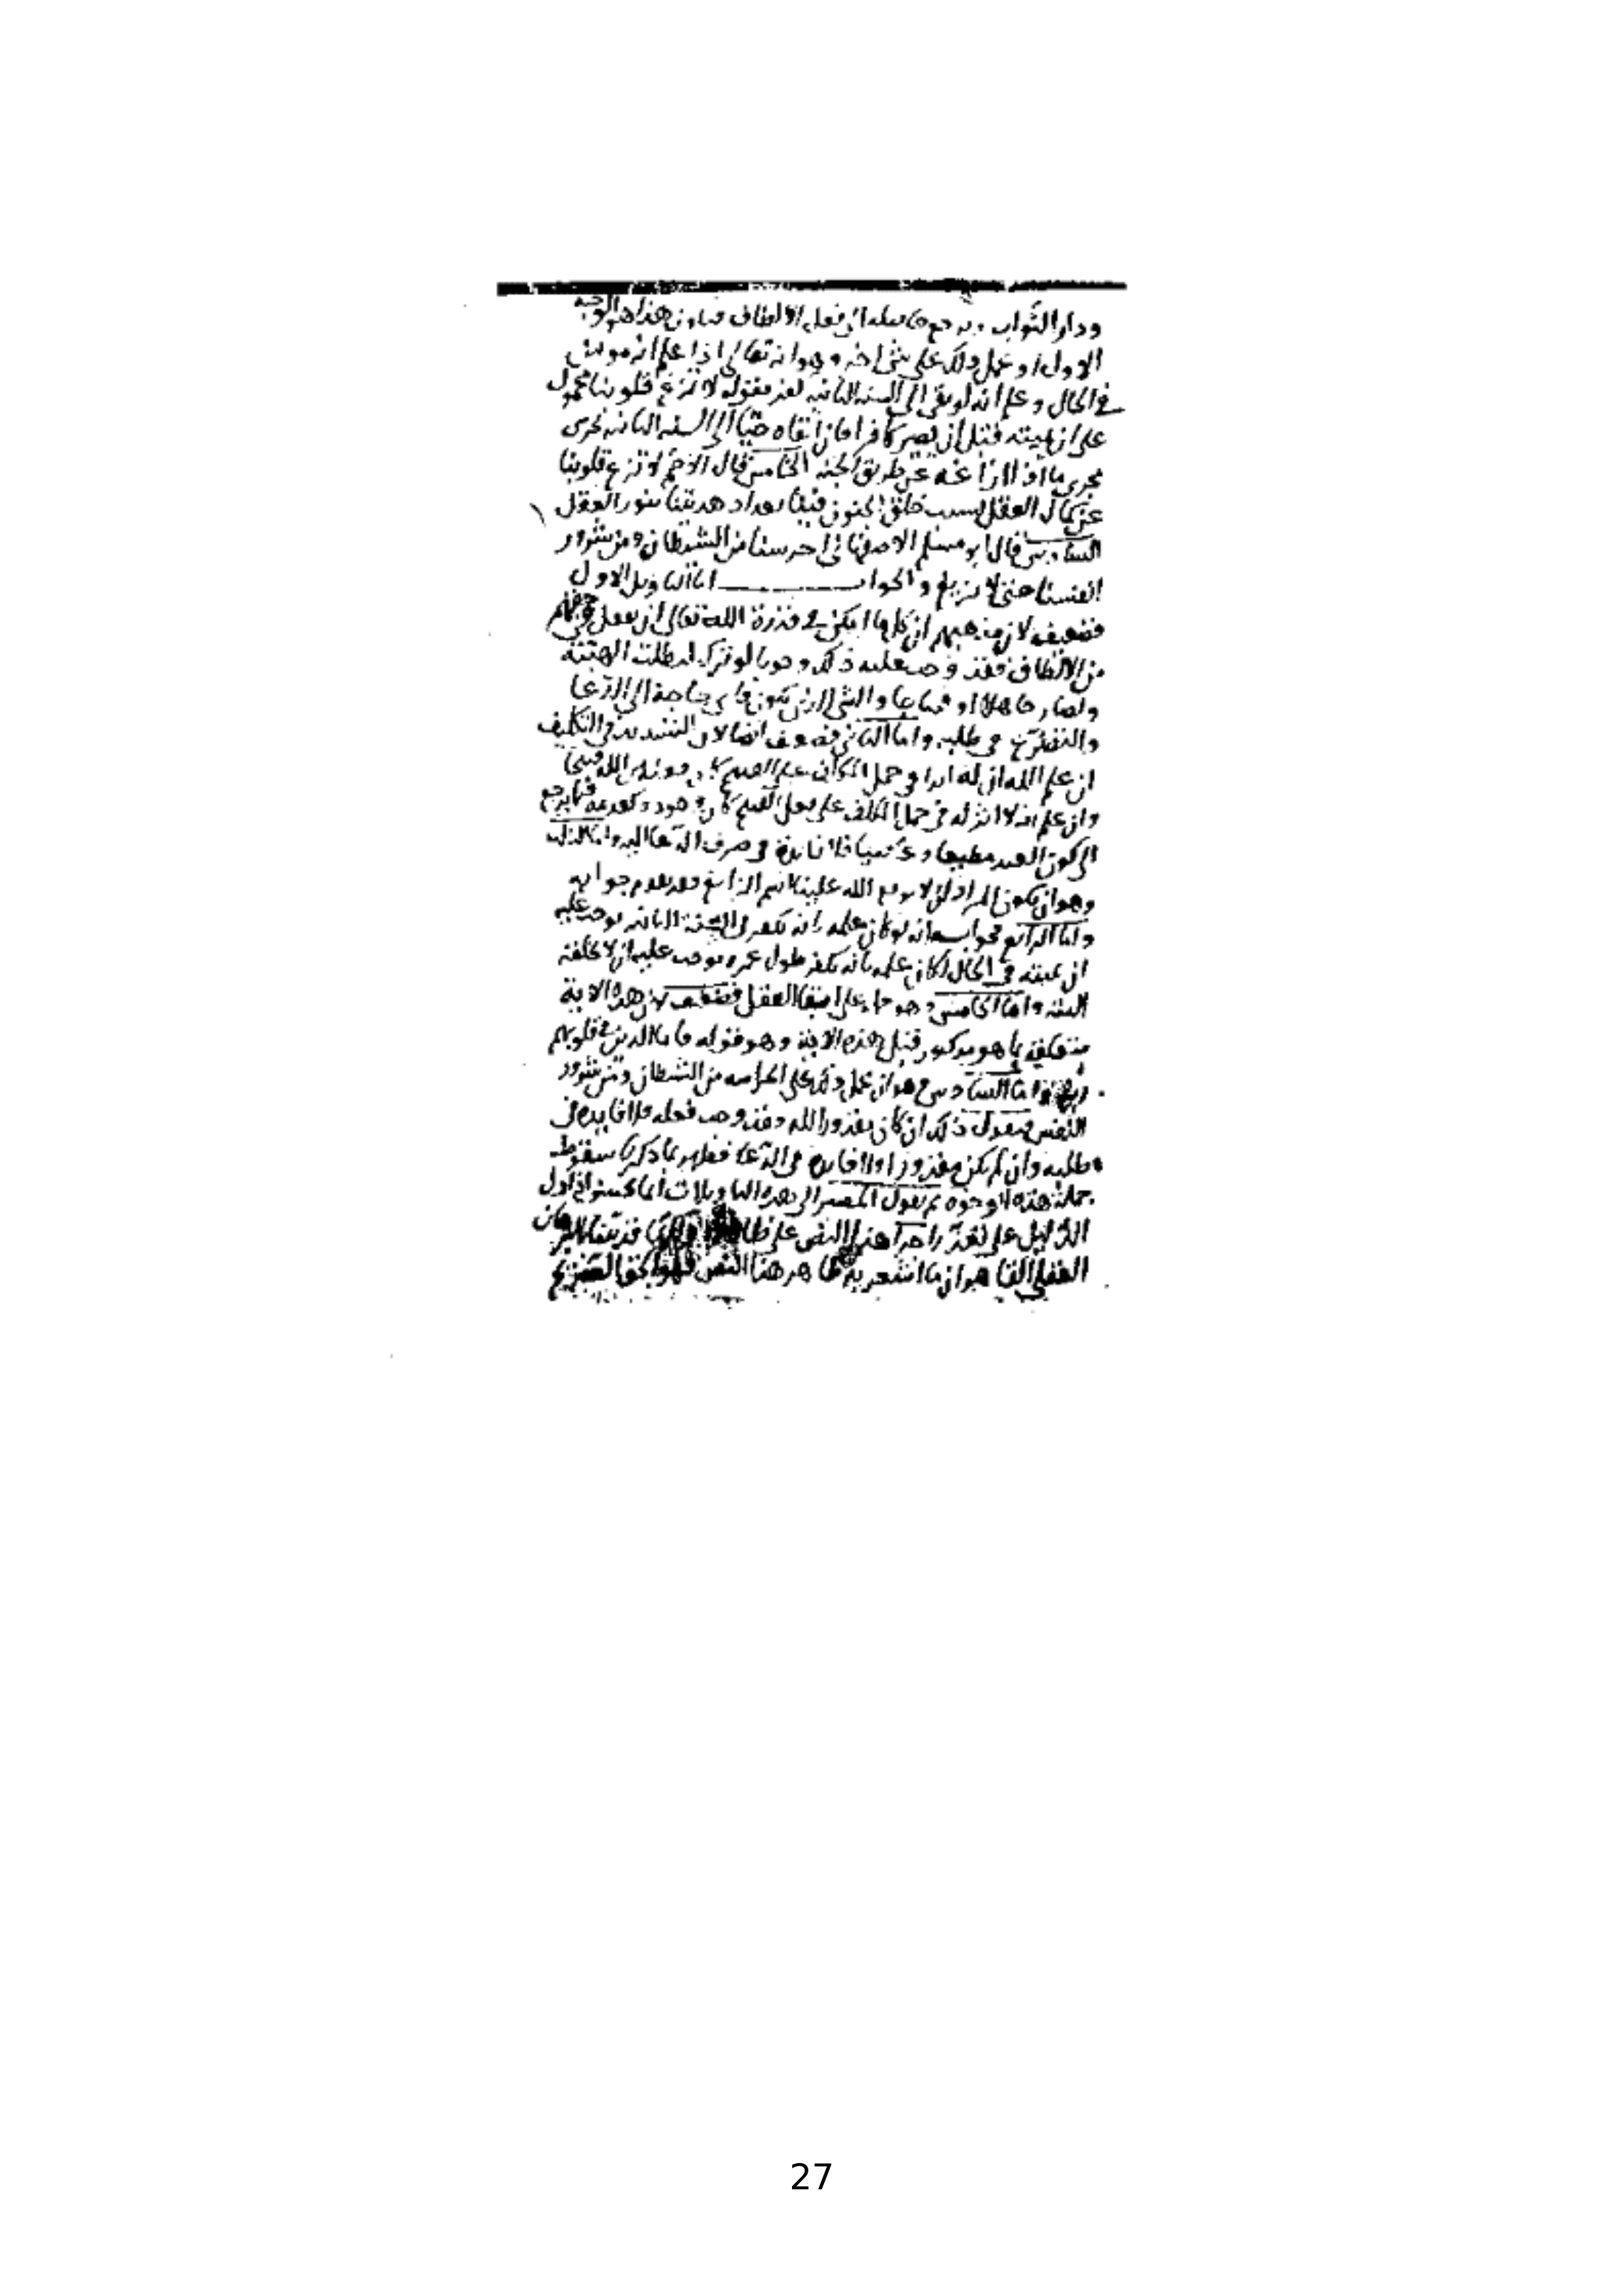 ودار الثواب ويرجع حاصله الى فعل الالطاف فيكون هذا هو الوجه
الاول او يحمل ذلك على شي اخر وهو انه تعالى اذا علم انه مومن
في الحال وعلم انه لو بقي الى السنة الثانية لكفر فقوله لا تزغ قلوبنا محمول
على ان يميته قبل ان يصير كافرا فان ابقاه حيا الى السنة الثانية يجري
مجرى ما اذا ازاغه عن طريق الجنة الخامس قال الاصم لا تزغ قلوبنا
عن كمال العقل بسبب خلق الجنون فينا بعد اذ هديتنا بنور العقل
السادس قال ابو مسلم الاصفهاني احرسنا من الشيطان ومن شرور
انفسنا حتى لا نزيغ والجواب اما التاويل الاول
فضعيف لان مذهبهم ان كل ما امكن في قدرة الله تعالى ان يفعل في حقهم
من الالطاف فقد وجب عليه ذلك وجوبا لو تركه لبطلت الهيته
ولصار جاهلا او محتاجا والشي الذي يكون اي حاجة الى الدعا
والتضرع في طلبه واما الثاني فضعيف ايضا لان التشديد في التكليف
ان علم الله ان له اثرا في حمل المكلف على القبيح كان من الله قبيحا
وان علم انه لا اثر له في حمل المكلف على فعل القبيح كان وجوده كعدمه فيما يرجع
الى كون العبد مطيعا وعاصيا فلا فايدة في صرف الدعا اليه واما الثالث
وهو ان يكون المراد ان لا يوقع الله علينا اسم الزايغ فقد تقدم جوابه
واما الرابع فجوابه انه لو كان علمه بانه يكفر في السنة الثانية يوجب عليه
ان يميته في الحال لكان علمه بانه يكفر طول عمره يوجب عليه ان لا يخلقه
البتة واما الخامس وهو حمله على ابقا العقل فضعيف لان هذه الاية
متعلقة بما هو مذكور قبل هذه الاية وهو قوله فاما الذين في قلوبهم
زيغ واما السادس وهو ان يحمل ذلك على الحراسة من الشيطان ومن شرور
النفس فيقول ذلك ان كان مقدورا لله وقد وجب فعله فلا فايدة في
طلبه وان لم يكن مقدورا فلا فايدة في الدعا فظهر بما ذكرنا سقوط
جملة هذه الوجوه ثم نقول المصير الى هذه التاويلات انما يحسن اذا دل
الدليل على تعذر اجرا هذا النص على قد بينا البرهان
العقلي القاهر ان ما اشعر به ظاهر هذا النص فهو الحق الصريح
27